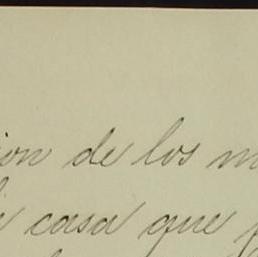 ion de los m
i casa que p